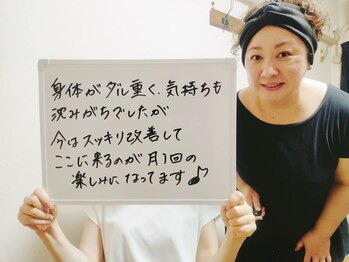 身体がダル重く、気持ちも
沈みがちでしたが
今はスッキリ改善して
ここに来るのが月1回の
楽しみになってます♪